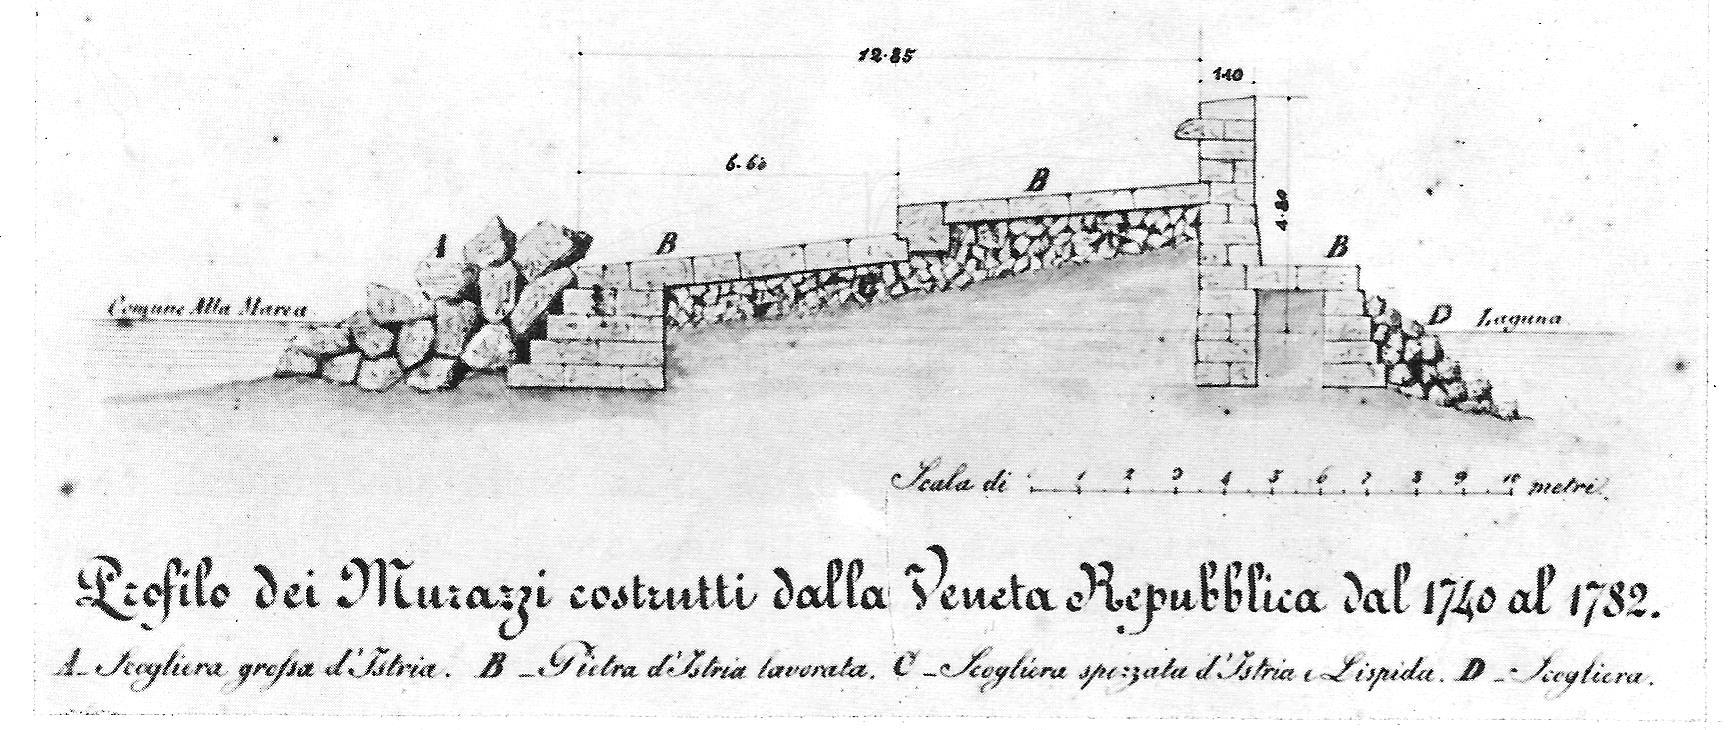 12·85
1·10
6·60
B
4·80
A
B
B
C
Comune Alla Marea
D Laguna
Scala di 1 2 3 4 5 6 7 8 9 10 metri.
Profilo dei Murazzi costrutti dalla Veneta Repubblica dal 1740 al 1782.
A - Scogliera grossa d'Istria. B - Pietra d'Istria lavorata. C - Scogliera spezzata d'Istria e Lispida. D - Scogliera.